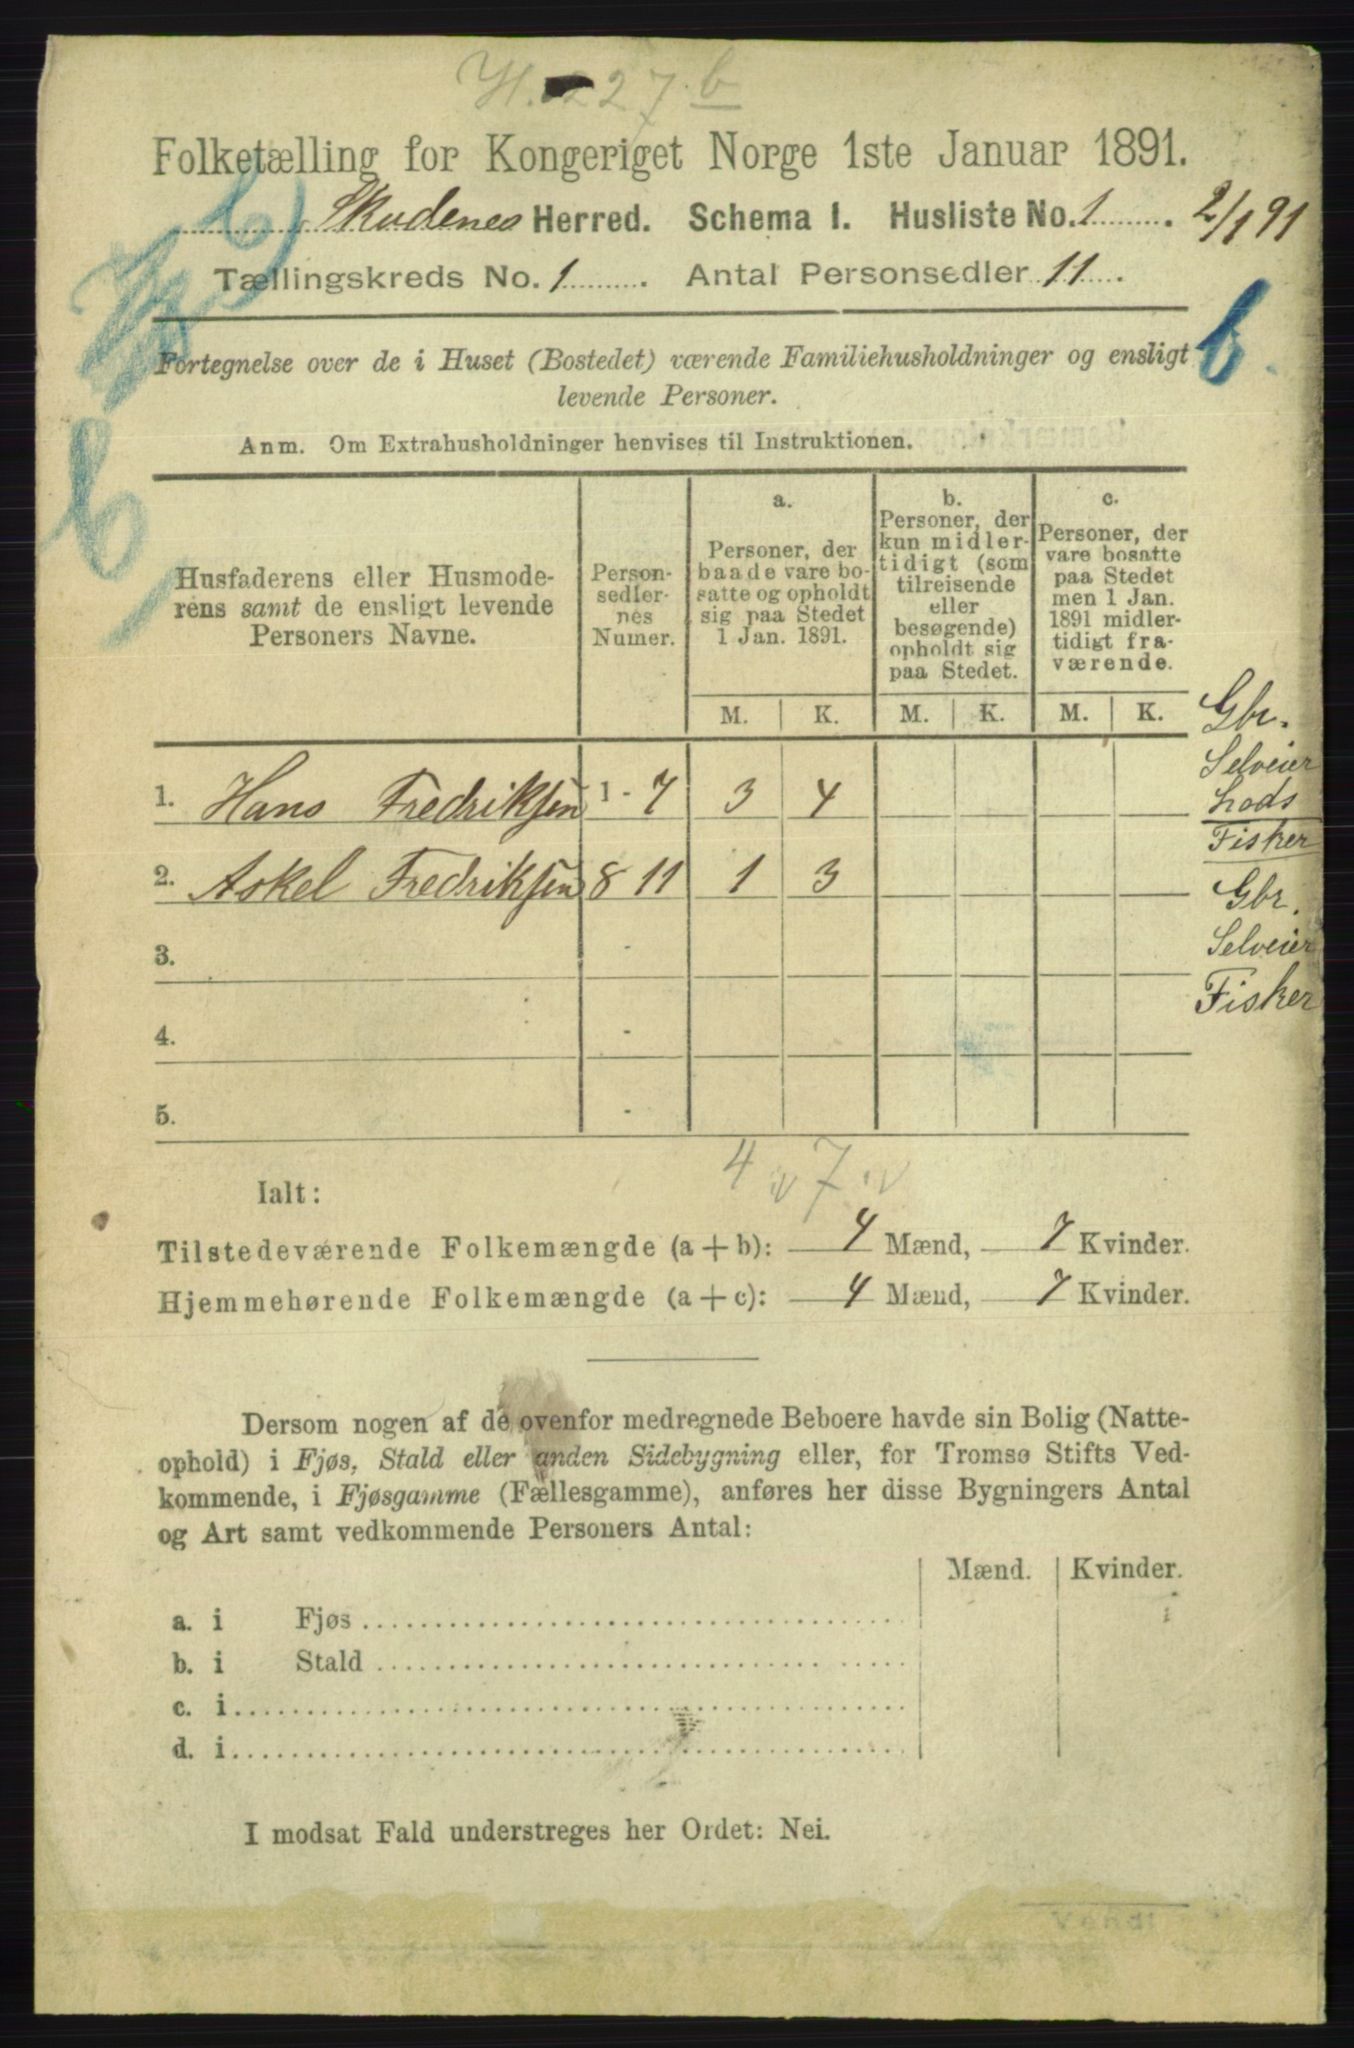 H. 227 b
Folketælling for Kongeriget Norge 1ste Januar 1891.
Skudenes Herred. Schema 1. Husliste No. 1 . 2/1 91
Tællingskreds No. 1 . Antal Personsedler 11 .
b
Fortegnelse over de i Huset (Bostedet) værende Familiehusholdninger og ensligt
levende Personer.
Anm. Om Extrahusholdninger henvises til Instruktionen.
Husfaderens eller Husmode-
rens samt de ensligt levende
Personers Navne.
Person-
sedler-
nes
Numer.
a.
Personer, der
baade vare bo-
satte og opholdt
sig paa Stedet
1 Jan. 1891.
b.
Personer, der
kun midler-
tidigt (som
tilreisende
eller
besøgende)
opholdt sig
paa Stedet.
c.
Personer, der
vare bosatte
paa Stedet
men 1 Jan.
1891 midler-
tidigt fra-
værende.
M. K. M. K. M. K.
1. Hans Fredriksen 1 - 7 3 4
Gbr.
Selveier
Lods
Fisker
2. Askel Fredriksen 8 11 1 3
Gbr.
Selveier
Fisker
3. -
4. -
5. -
4 v 7 v
Ialt:
Tilstedeværende Folkemængde (a + b): 4 Mænd, 7 Kvinder.
Hjemmehørende Folkemængde (a + c): 4 Mænd, 7 Kvinder.
Dersom nogen af de ovenfor medregnede Beboere havde sin Bolig (Natte-
ophold) i Fjøs, Stald eller anden Sidebygning eller, for Tromsø Stifts Ved-
kommende, i Fjøsgamme (Fællesgamme), anføres her disse Bygningers Antal
og Art samt vedkommende Personers Antal:
Mænd. Kvinder.
a. i Fjøs
b. i Stald
c. i
d. i
I modsat Fald understreges her Ordet: Nei.
Vend!